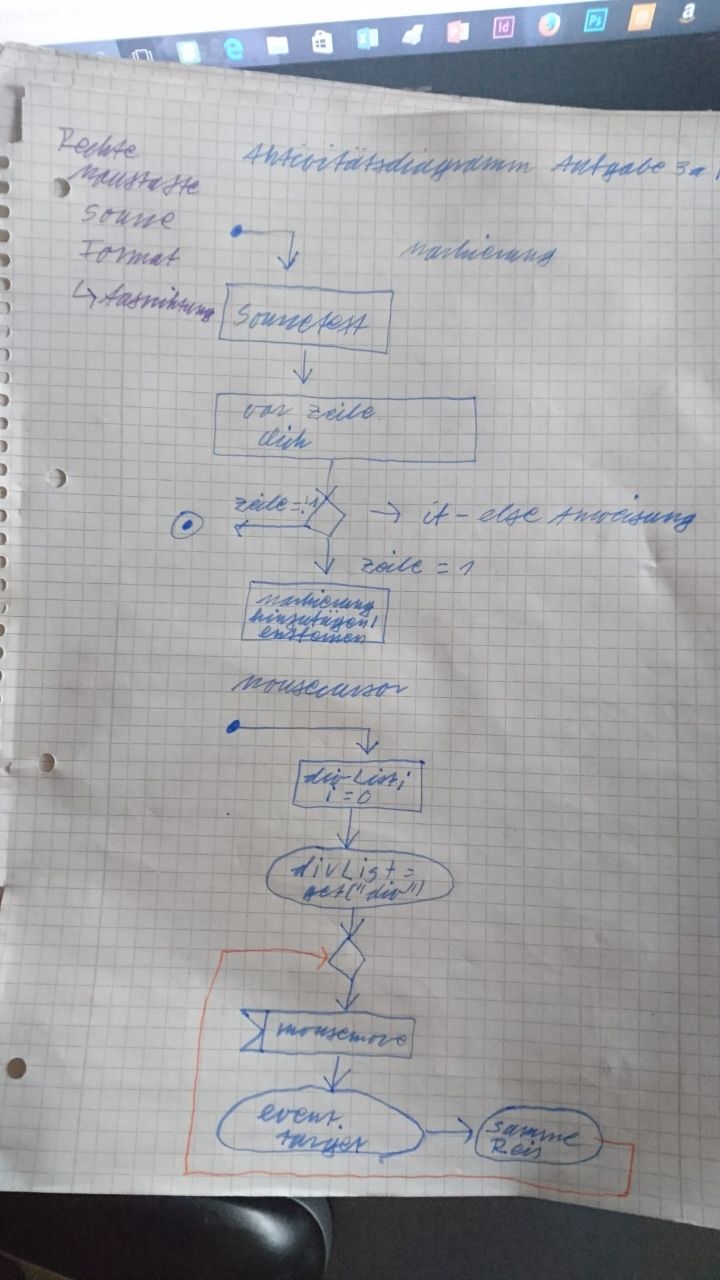 Rechte
Maustaste
Source
Format
↳ Ausrichtung
Aktivitätsdiagramm Aufgabe 3a
Markierung
Sourcetext
vor Zeile
dich
Zeile=!1
→ if-else Anweisung
Zeile = 1
Markierung
hinzufügen/
entfernen
Mousecursor
div-List;
i=0
divList=
get("div")
mousemove
event.
target
Id
Ps
a